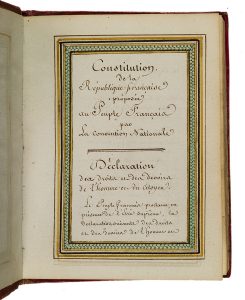 Constitution
de la
République française
proposée
au Peuple Français
par
La Convention Nationale
Déclaration
des droits et des devoirs
de l'homme et du citoyen
Le Peuple français proclame, en
présence de l'être suprême, la
déclaration suivante des droits
et des devoirs de l'homme et